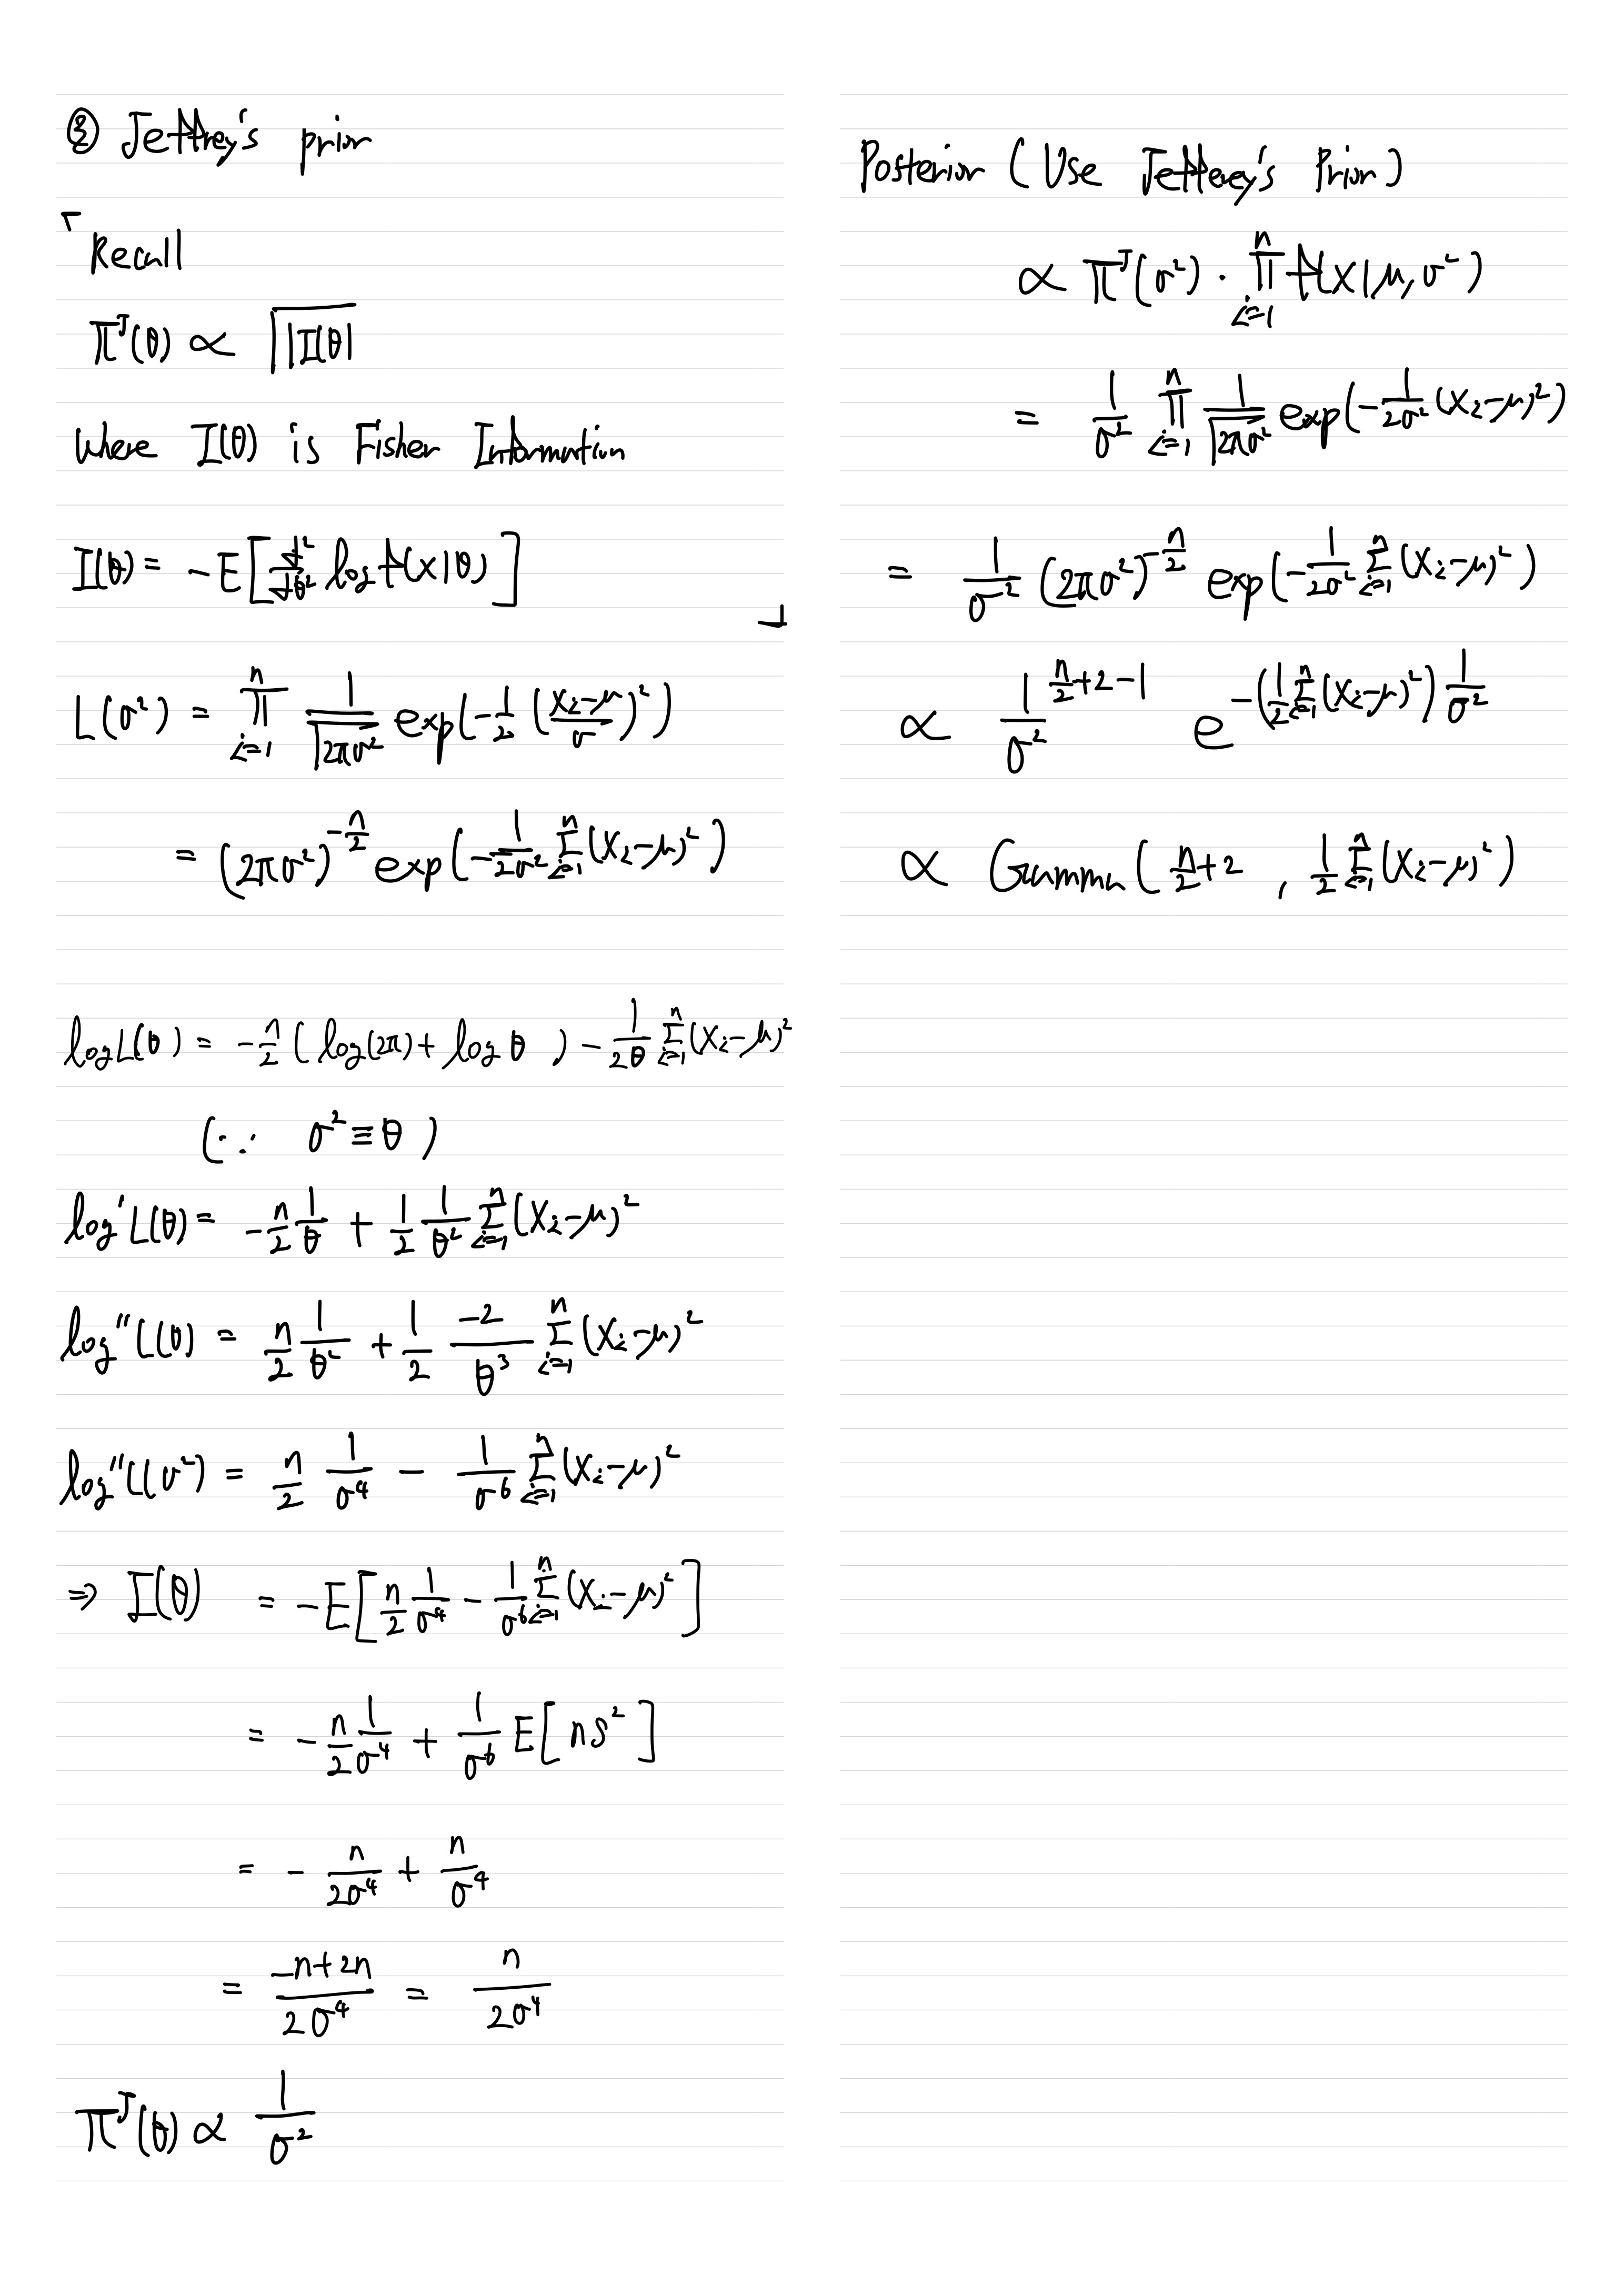 ② Jeffrey's prior
「 Recall
π^J(θ) ∝ √|I(θ)|
Where I(θ) is Fisher Information
I(θ) = -E[ d²/dθ² log f(x|θ) ] 」
L(σ²) = ∏_{i=1}^n 1/√(2πσ²) exp(-1/2 ((x_i-μ)/σ)²)
= (2πσ²)^{-n/2} exp(-1/(2σ²) Σ_{i=1}^n (x_i-μ)²)
log L(θ) = -n/2 (log(2π) + log θ) - 1/(2θ) Σ_{i=1}^n (x_i-μ)²
(∵ σ² ≡ θ)
log' L(θ) = -n/2 1/θ + 1/2 1/θ² Σ_{i=1}^n (x_i-μ)²
log'' L(θ) = n/2 1/θ² + 1/2 -2/θ³ Σ_{i=1}^n (x_i-μ)²
log'' L(σ²) = n/2 1/σ⁴ - 1/σ⁶ Σ_{i=1}^n (x_i-μ)²
⇒ I(θ) = -E[ n/2 1/σ⁴ - 1/σ⁶ Σ_{i=1}^n (x_i-μ)² ]
= -n/2 1/σ⁴ + 1/σ⁶ E[ nS² ]
= - n/(2σ⁴) + n/σ⁴
= (-n+2n)/(2σ⁴) = n/(2σ⁴)
π^J(θ) ∝ 1/σ²
Posterior (Use Jeffrey's Prior)
∝ π^J(σ²) · ∏_{i=1}^n f(x|μ, σ²)
= 1/σ² ∏_{i=1}^n 1/√(2πσ²) exp(-1/(2σ²) (x_i-μ)²)
= 1/σ² (2πσ²)^{-n/2} exp(-1/(2σ²) Σ_{i=1}^n (x_i-μ)²)
∝ 1/σ²^{n/2+2-1} e^{-(1/2 Σ_{i=1}^n (x_i-μ)²) 1/σ²}
∝ Gamma( n/2+2 , 1/2 Σ_{i=1}^n (x_i-μ)²)